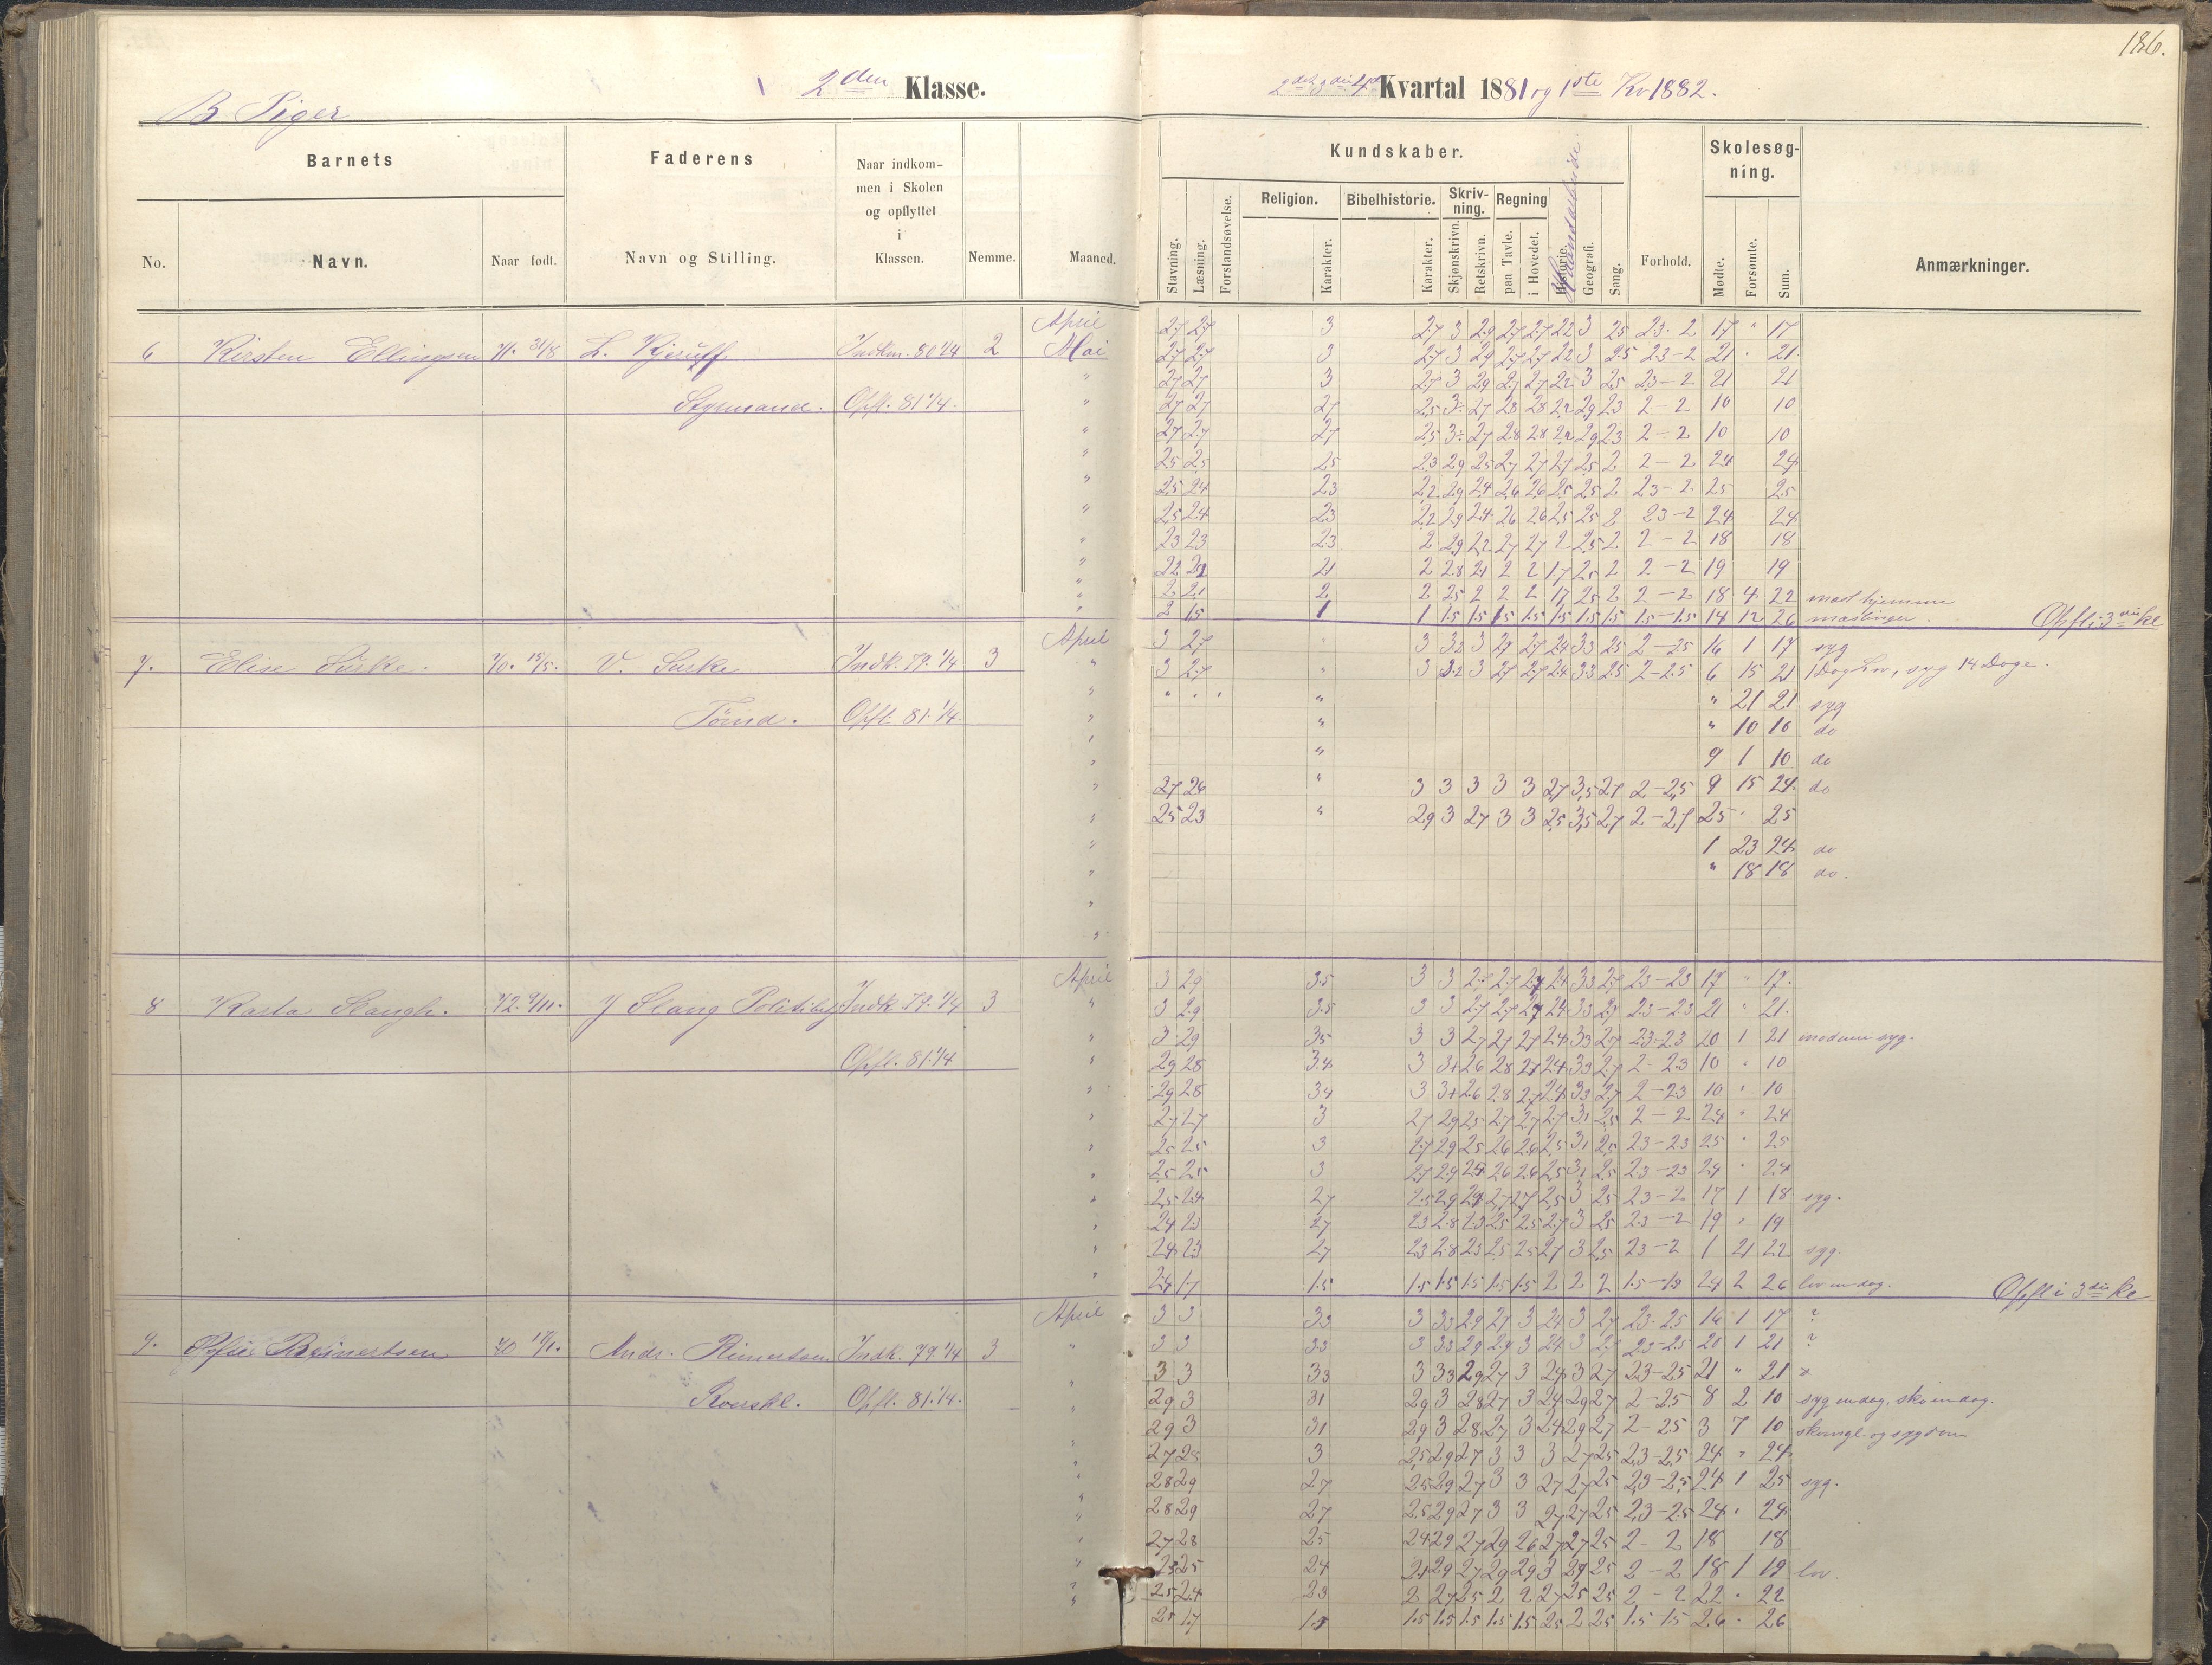 186.
2den Klasse.
2det 3die 4de Kvartal 1881 og 1ste Kv 1882.
B Piger
Barnets
Faderens
Naar indkom-
men i Skolen
og opflyttet
i
Klassen.
No.
Navn.
Naar født.
Navn og Stilling.
Nemme.
Maaned.
Kundskaber.
Skolesøg-
ning.
Stavning.
Læsning.
Forstandsøvelse.
Religion.
Karakter.
Bibelhistorie.
Karakter.
Skriv-
ning.
Skjønskrivn.
Retskrivn.
Regning
paa Tavle.
i Hovedet.
Historie.
Haandarbeide
Geografi.
Sang.
Forhold.
Mødte.
Forsømte.
Sum.
Anmærkninger.
April
27 27 3 27 3 29 27 27 22 3 25 23-2 17 " 17
6 Kirsten Ellingsen 71. 31/8 Indkm. 80 1/4 2 Mai
27 27 3 27 3 29 27 27 22 3 25 23-2 21 " 21
27 27 3 27 3 29 27 27 22 3 25 23-2 21 21
Styrmand. Opfl. 81 1/4.
27 27 27 25 3÷ 27 28 28 22 29 23 2-2 10 10
27 27 27 25 3÷ 27 28 28 22 29 23 2-2 10 10
25 25 25 23 29 25 27 27 27 25 2 2-2 24 24
25 24 23 22 29 24 26 26 25 25 2 23-2 25 25
25 24 23 22 29 24 26 26 25 25 2 23-2 24 24
23 23 23 2 29 22 27 27 2 25 2 2-2 18 18
22 21 21 2 28 21 2 2 17 25 2 2-2 19 19
2 21 2 2 25 2 2 2 17 25 2 2-2 18 4 22 hjemme
2 15 1 1 15 15 15 15 15 15 15 15-15 14 12 26 Opfl i 3die kl
April
3 27 3 32 3 27 27 24 33 25 2-25 16 1 17 syg
7. Elise 70. 15/5. V. Indk. 79. 1/4 3 "
3 27 " 3 32 3 27 27 24 33 25 2-25 6 15 21 1 Dag Lov, syg 14 Dage.
" " " " " 21 21 syg
Tømd. Opfl. 81. 1/4.
" " 10 10 do
" 9 1 10 do
27 26 " 3 3 3 3 3 27 3,5 27 2-25 9 15 24 do
25 23 " 29 3 27 3 3 25 3,5 27 2-27 25 " 25
1 23 24 do
" 18 18 do.
April
3 29 35 3 3 27 27 27 24 33 27 23-23 17 " 17.
8 72. 9/11. J Stang Politibetj Indk. 79. 1/4 3 "
3 29 35 3 3 27 27 27 24 33 27 23-23 21 " 21.
3 29 35 3 3 27 27 27 24 33 27 23-23 20 1 21 moderen syg.
Opfl. 81. 1/4
29 28 34 3 3+ 26 28 27 24 33 27 2-23 10 " 10
29 28 34 3 3+ 26 28 27 24 33 27 2-23 10 " 10
27 27 3 27 29 25 27 27 27 31 25 2-2 24 " 24
25 25 3 27 29 25 26 26 25 31 25 23-23 25 " 25
25 25 3 27 29 24 26 26 25 31 25 23-23 24 " 24
25 24 27 25 29 24 27 27 25 3 25 23-2 17 1 18 syg.
24 23 27 23 28 23 25 25 27 3 25 23-2 19 " 19
24 23 27 23 28 23 25 25 27 3 25 23-2 1 21 22 syg.
24 17 15 15 15 15 15 15 2 2 2 15-15 24 2 26 lov en dag. Opfl i 3die kl
April
3 3 33 3 33 29 27 3 24 3 27 23-25 16 1 17 ?
9. 70 Andr. Indk. 79. 1/4 3 "
3 3 33 3 33 29 29 3 24 3 27 23-25 20 1 21 ?
3 3 33 3 33 29 27 3 24 3 27 23-25 21 " 21
Opfl. 81. 1/4.
29 3 31 29 3 28 27 3 24 29 27 2-25 8 2 10 syg endag, sko endag.
29 3 31 29 3 28 27 3 24 29 27 2-25 3 7 10
27 28 3 25 29 27 3 3 3 27 25 23-25 24 " 24
28 29 27 25 29 27 3 3 27 27 25 23-25 24 1 25 syg.
28 29 27 25 29 27 3 3 27 27 25 23-25 24 " 24
27 28 25 24 29 27 29 26 27 27 25 2-2 18 18
25 25 24 21 29 27 29 29 3 29 25 2-2 18 1 19 lov.
25 24 23 2 27 25 2 2 27 25 25 2-2 22 " 22
25 17 15 15 15 15 15 15 25 2 25 15-15 26 " 26